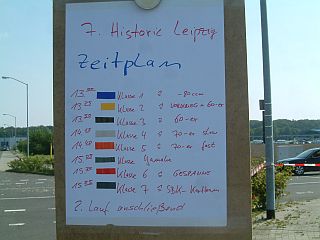 7. Historic Leipzig
Zeitplan
13.00 Klasse 1 : -80ccm
13.25 Klasse 2 : VORKRIEG + 60-er
13.50 Klasse 3 : 60-er
14.15 Klasse 4 : 70-er slow
14.40 Klasse 5 : 70-er fast
Klasse Yamaha
15.30 Klasse 6 : GESPANNE
15.55 Klasse 7 :
2. Lauf anschließend